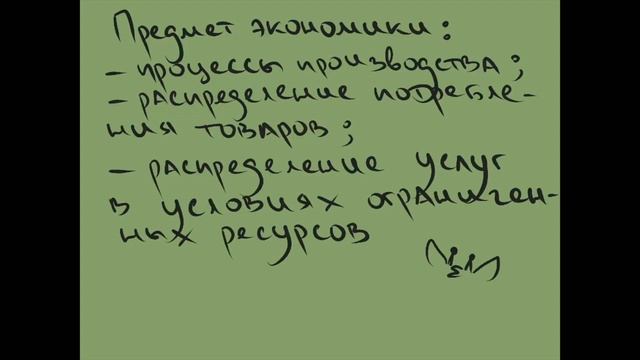 Предмет экономики:
– процессы производства;
– распределение потребле-
ния товаров;
– распределение услуг
в условиях ограничен-
ных ресурсов